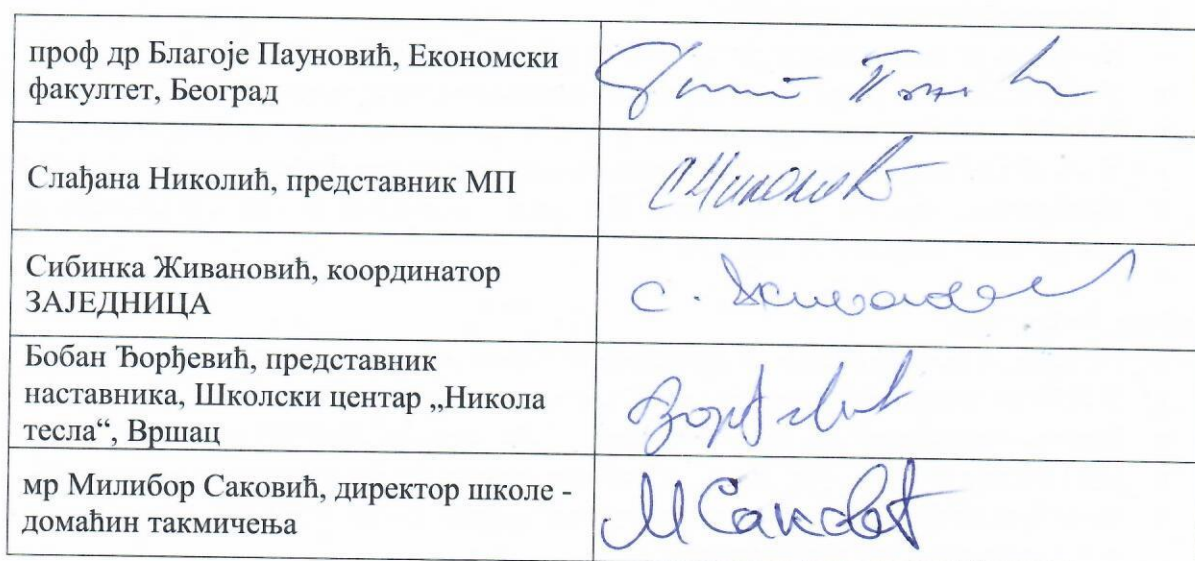 проф др Благоје Пауновић, Економски
факултет, Београд
Слађана Николић, представник МП
Сибинка Живановић, координатор
ЗАЈЕДНИЦА
С.
Бобан Ђорђевић, представник
наставника, Школски центар „Никола
тесла“, Вршац
мр Милибор Саковић, директор школе -
домаћин такмичења